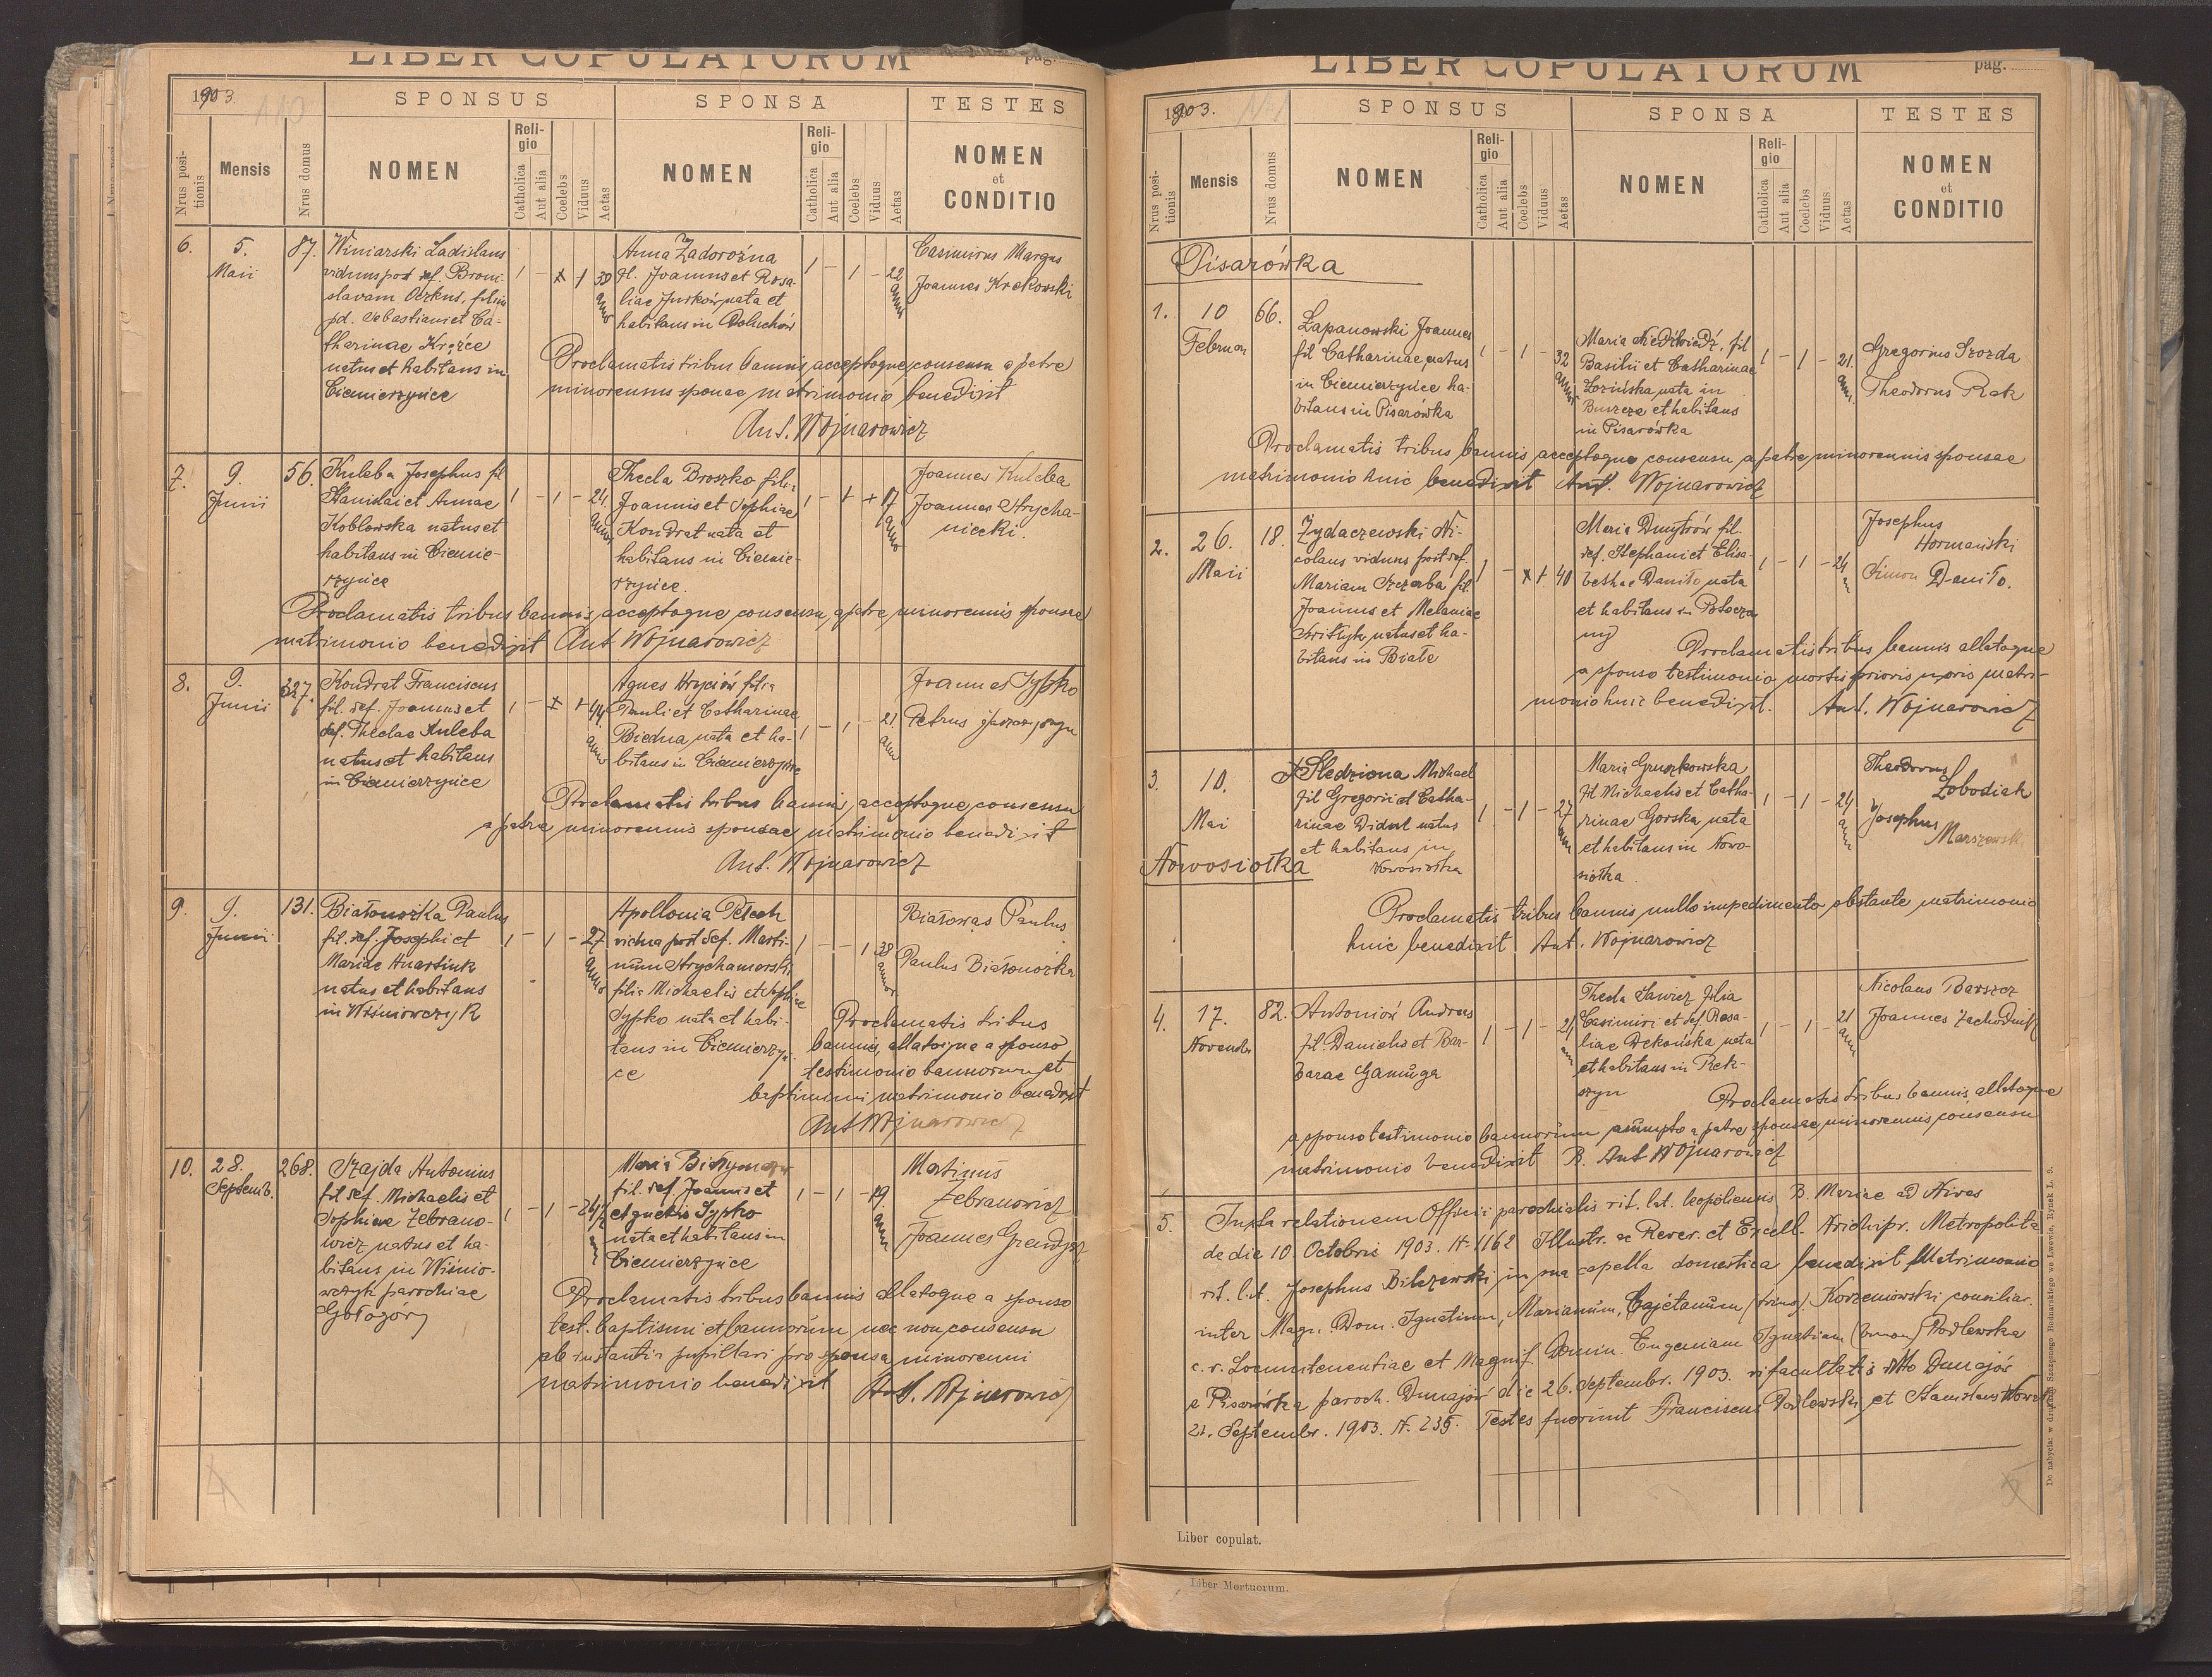 LIBER COPULATORUM
pag.
1903.
SPONSUS
SPONSA
TESTES
Nrus positionis
Mensis
Nrus domus
NOMEN
Religio
Catholica
Aut alia
Coelebs
Viduus
Aetas
NOMEN
Religio
Catholica
Aut alia
Coelebs
Viduus
Aetas
NOMEN
et
CONDITIO
6.
5.
Maii
87.
Winiarski Ladislaus
viduus post def. Broni-
slavam filius
pd. Sebastiani et Ca-
tharinae
natus et habitans in
Ciemierzynce
Anna Zadorożna
fil. Joannis et Rosa-
liae Jurków nata et
habitans in
22
Casimirus Margas
Joannes Krekowski
Proclamatis tribus bannis, acceptoque consensu a patre
minorennis sponsae matrimonio benedixit
Ant. Wojnarowicz
7.
9.
Junii
56.
Kuleba Josephus fil
Stanislai et Annae
Koblowska natus et
habitans in Ciemie-
rzynce
Thecla Broszko filia
Joannis et Sophiae
Kondrat nata et
habitans in Ciemie-
rzynce.
17
Joannes Kuleba
Joannes Strycha-
niecki.
Proclamatis tribus bannis, acceptoque consensu, a patre minorennis sponsae
matrimonio benedixit Ant Wojnarowicz
8.
9.
Junii
327.
Kondrat Franciscus
fil. def. Joannis et
def. Theclae Kuleba
natus et habitans
in Ciemierzynce
44
Agnes Hryciów filia
Pauli et Catharinae
Biedna nata et ha-
bitans in Ciemierzynce
21
Joannes Sypko
Petrus
Proclamatis tribus bannis, acceptoque consensu
a patre minorennis sponsae matrimonio benedixit
Ant. Wojnarowicz
9.
9.
Junii
131.
Białonożka Paulus
fil. def. Josephi et
Mariae
natus et habitans
in Wiśniowczyk
27
Apollonia Pelech
vidua post def. Marti-
num
filia Michaelis et Sophiae
Sypko nata et habi-
tans in Ciemierzyn-
ce
38
Białowąs Paulus
Paulus Białonożka
Proclamatis tribus
bannis, allatoque a sponso
testimonio bannorum et
baptismi matrimonio benedixit
Ant Wojnarowicz
10.
28.
Septemb.
268.
Szajda Antonius
fil. def. Michaelis et
Sophiae Zebrano-
wicz natus et ha-
bitans in Wiśnio-
wczyk parochiae
Gołogóry
Maria
fil. def. Joannis et
Sypko
nata et habitans in
Ciemierzynce
19
Martinus
Zebranowicz
Joannes
Proclamatis tribus bannis allatoque a sponso
test. baptismi et bannorum nec non consensu
ab instantia pupillari pro sponsa minorenni
matrimonio benedixit Ant. Wojnarowicz
LIBER COPULATORUM
pag.
1903.
SPONSUS
SPONSA
TESTES
Nrus positionis
Mensis
Nrus domus
NOMEN
Religio
Catholica
Aut alia
Coelebs
Viduus
Aetas
NOMEN
Religio
Catholica
Aut alia
Coelebs
Viduus
Aetas
NOMEN
et
CONDITIO
Pisarówka
1.
10
Februar
66.
Łapanowski Joannes
fil Catharinae, natus
in Ciemierzynce ha-
bitans in Pisarówka
32
Maria Niedźwiedź, fil
Basilii et Catharinae
Łozińska nata in
Buszcze et habitans
in Pisarówka
21.
Gregorius Szozda
Theodorus Rak
Proclamatis tribus bannis, acceptoque consensu a patre, minorennis sponsae
matrimonio huic benedixit Ant. Wojnarowicz
2.
26.
Maii
18.
Żydaczewski Ni-
colaus viduus post def.
Mariam Szczerba fil.
Joannis et Melaniae
natus et ha-
bitans in Białe
40
Maria Dmytrów fil.
def. Stephani et Elisa-
bethae Daniło nata
et habitans in Potocza-
ny
24
Josephus
Hormański
Simon Daniło.
Proclamatis tribus bannis allatoque
a sponso testimonio mortis prioris uxoris matri-
monio huic benedixit. Ant. Wojnarowicz
3.
10.
Mai
Nowosiołka
Śledziona Michael
fil Gregorii et Catha-
rinae Diduł natus
et habitans in
Nowosiołka
27
Maria Gruszkowska
fil Michaelis et Catha-
rinae Gorska nata
et habitans in Nowo-
siołka.
24
Theodorus
Łobodiak
Josephus
Marszewsk
Proclamatis tribus bannis nullo impedimento obstante matrimonio
huic benedixit Ant. Wojnarowicz
4.
17.
Novembr
82.
Antoniów Andreas
fil. Danielis et Bar-
barae Gamuga
Thecla Sawicz filia
Casimiri et def. Rosa-
liae Dekońska nata
et habitans in Rek-
szyn
21
Nicolaus Barszcz
Joannes Zachodnik
Proclamatis tribus bannis, allatoque
a sponso testimonio bannorum assumpto a patre sponsae minorennis consensu
matrimonio benedixit B. Ant Wojnarowicz
5.
Juxta relationem Officii parochialis rit. lat. leopoliensis B. Mariae ad Nives
de die 10 Octobris 1903. N. 1162 Illustr. ac Rever. et Excell. Archipr. Metropolita
rit. lat. Josephus Bilczewski in sua capella domestica benedixit Matrimonio
inter Magn. Dom. Ignatium, Marianum, Cajetanum (trino). Korzeniowski consiliar.
c. r. Locumtenentiae et Magnif. Domin. Eugeniam Ignatiam (binom) Podlewska
e Pisarówka paroch. Dunajów die 26. Septembr. 1903. vi facultatis dtto Dunajów
21. Septembr. 1903. N. 235. Testes fuerunt Franciscus Podlewski et Stanislaus
Liber copulat.
Do nabycia: w drukarni Szczęsnego Bednarskiego we Lwowie, Rynek L. 9.
Liber Mortuorum.